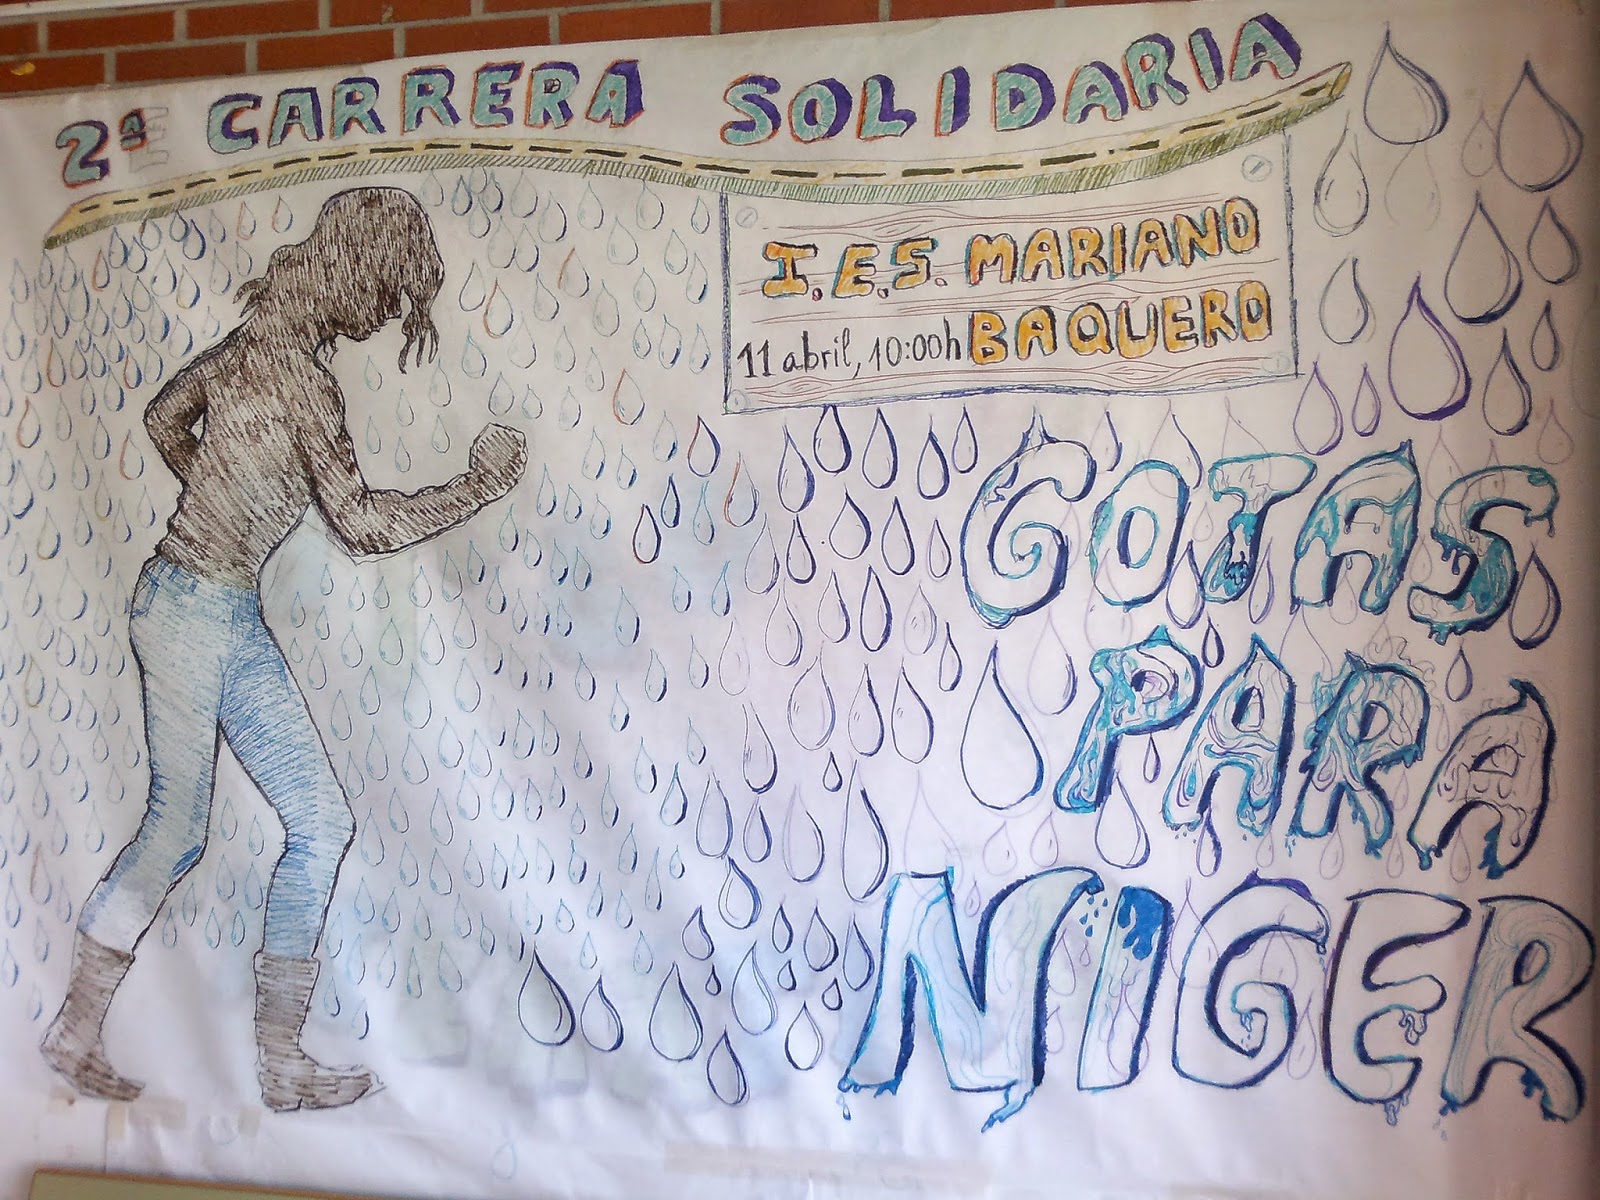 2ª CARRERA SOLIDARIA
I.E.S. MARIANO
11 abril, 10:00h BAQUERO
GOTAS
PARA
NIGER